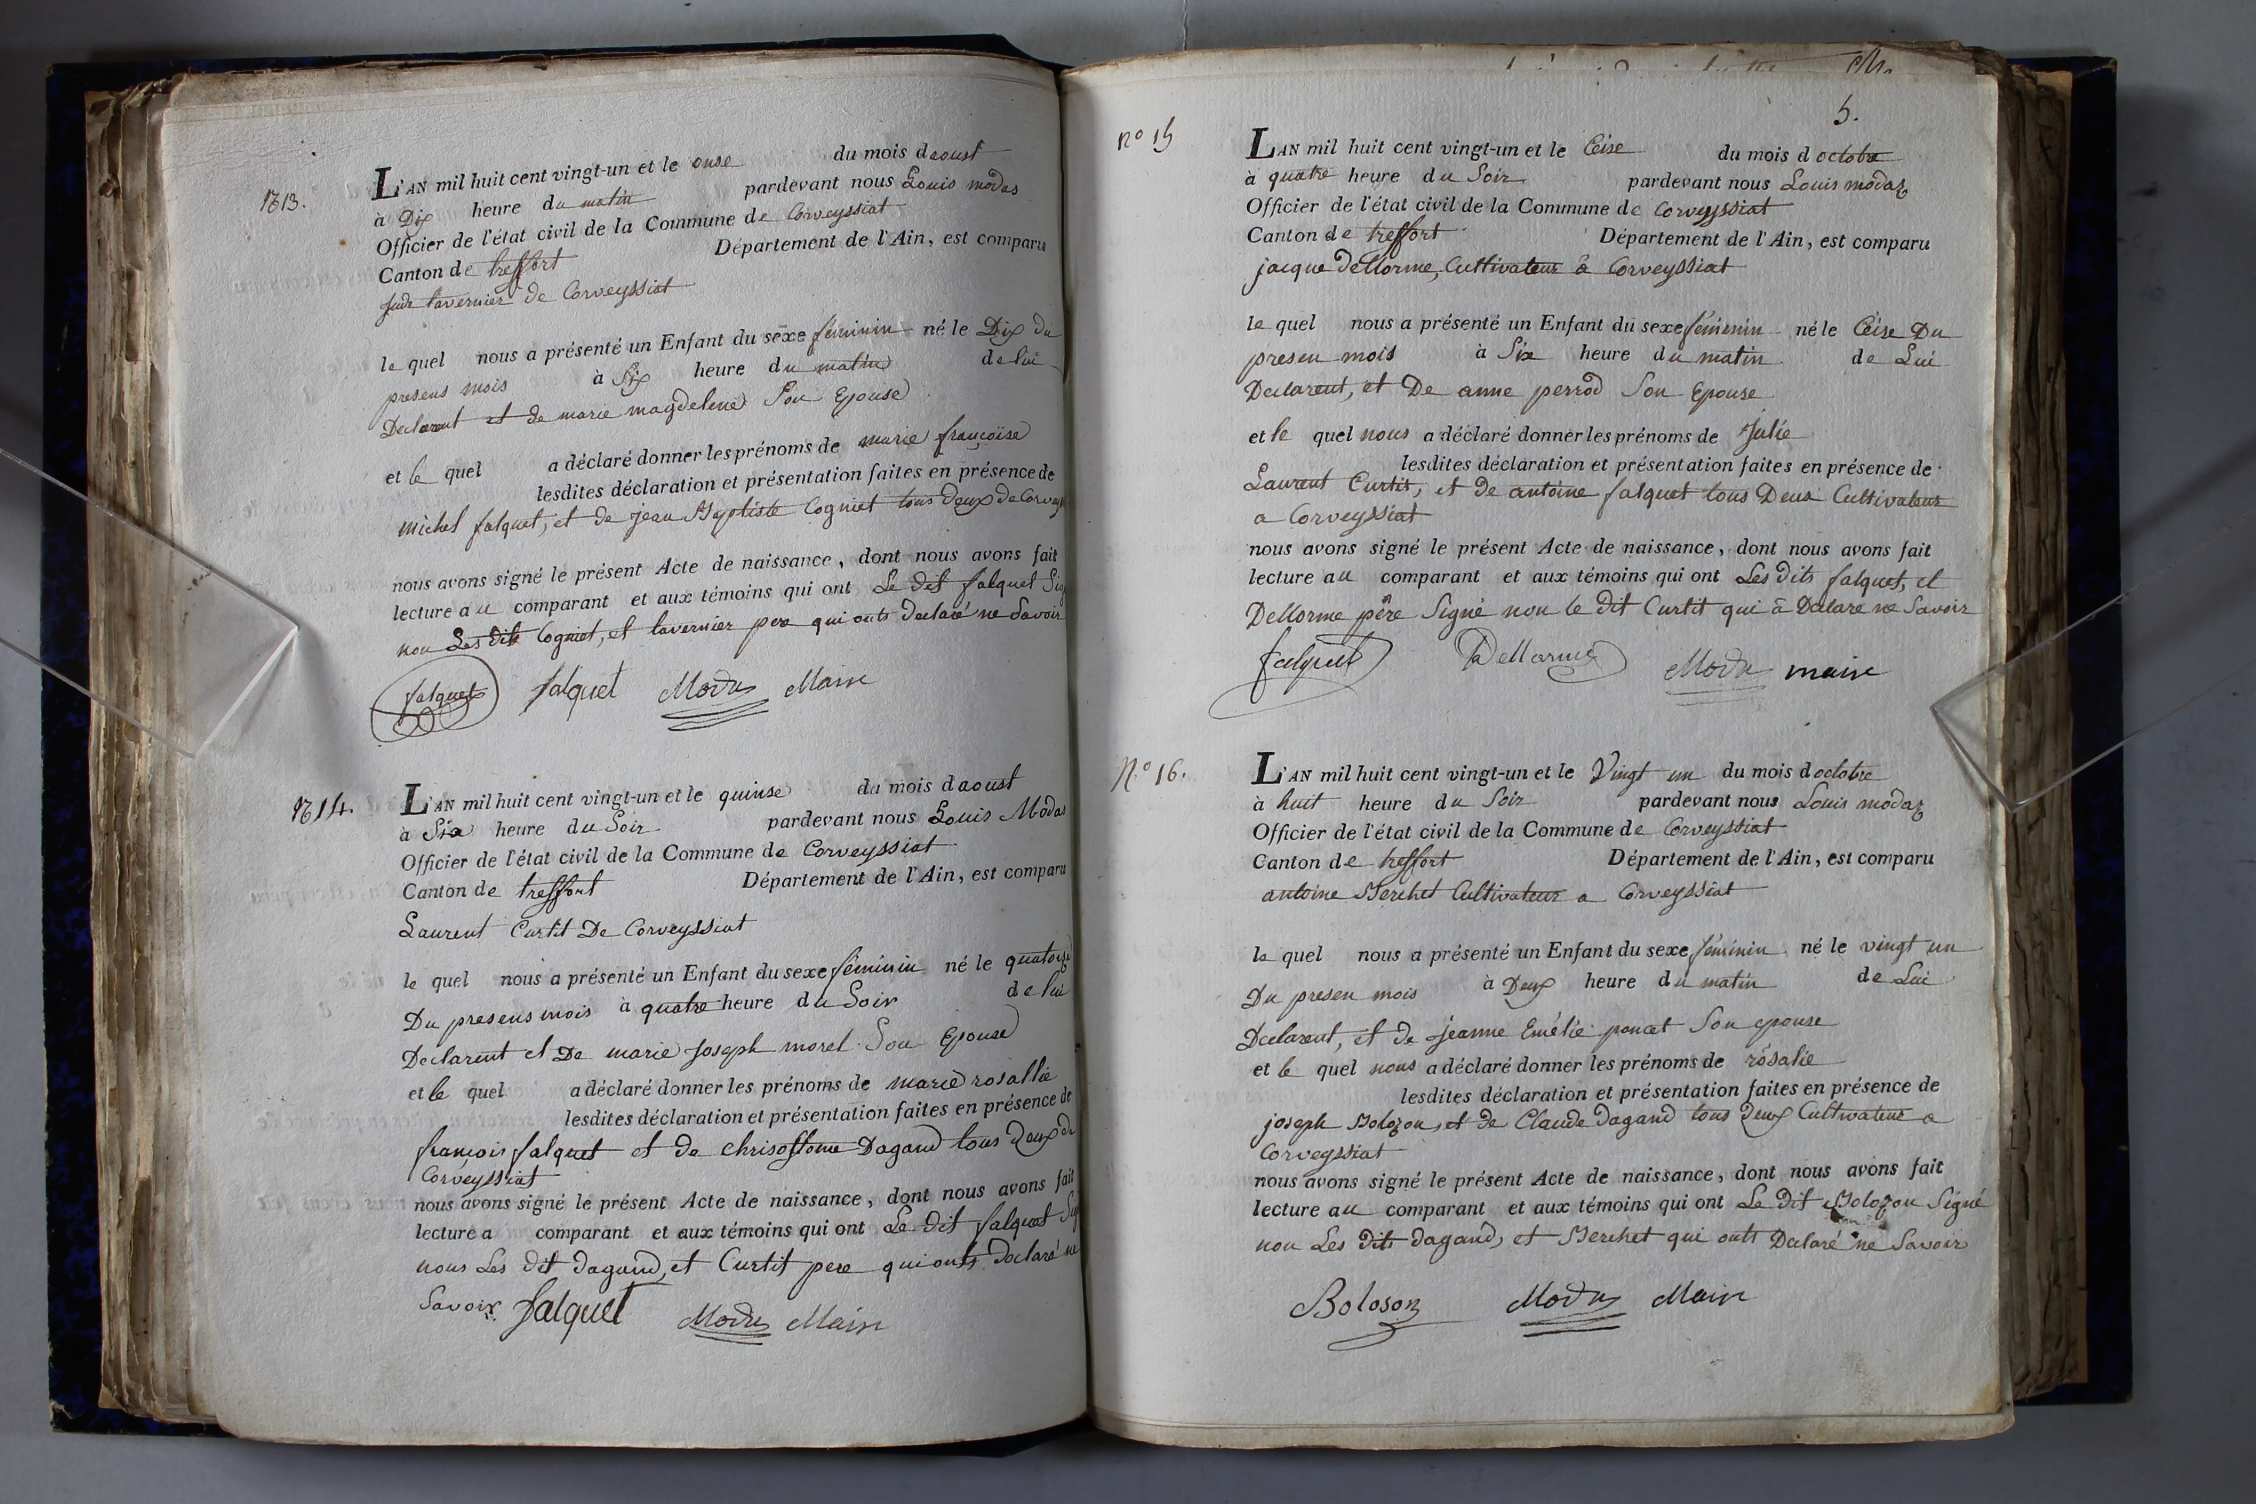 N° 13.
L'AN mil huit cent vingt-un et le onse du mois daoust
à Dix heure du matin pardevant nous Louis modas
Officier de l'état civil de la Commune de Corveyssiat
Canton de treffort Département de l'Ain, est comparu
tavernier de Corveyssiat
le quel nous a présenté un Enfant du sexe féminin né le Dix du
presens mois à Six heure du matin de lui
Declarent et de marie magdelene Son Epouse
et le quel a déclaré donner les prénoms de marie françoise
lesdites déclaration et présentation faites en présence de
michel falquet, et de jean Baptiste Cogniet tous deux de
nous avons signé le présent Acte de naissance, dont nous avons fait
lecture au comparant et aux témoins qui ont Le dit falquet
non Les dits Cogniet, et tavernier pere qui onts declaré ne Savoir
falquet falquet Modas Maire
N° 14.
L'AN mil huit cent vingt-un et le quinse du mois daoust
à Six heure du Soir pardevant nous Louis Modas
Officier de l'état civil de la Commune de Corveyssiat
Canton de treffort Département de l'Ain, est comparu
Laurent Curtit De Corveyssiat
le quel nous a présenté un Enfant du sexe féminin né le quatorse
Du presens mois à quatre heure du Soir de lui
Declarent et De marie Joseph morel Son Epouse
et le quel a déclaré donner les prénoms de marie rosallie
lesdites déclaration et présentation faites en présence de
françois falquet et de chrisostome Dagand tous deux de
Corveyssiat
nous avons signé le présent Acte de naissance, dont nous avons fait
lecture a comparant et aux témoins qui ont Le dit falquet
nous Les dit dagand, et Curtit pere qui onts Declaré ne
Savoir falquet Modas Maire
5.
n° 15
L'AN mil huit cent vingt-un et le Ceise du mois doctobre
à quatre heure du Soir pardevant nous Louis modaz
Officier de l'état civil de la Commune de Corveyssiat
Canton de treffort Département de l'Ain, est comparu
jacque Dellorme, Cultivateur à Corveyssiat
le quel nous a présenté un Enfant du sexe féminin né le Ceise Du
presen mois à Six heure du matin de Lui
Declarent, et De anne perrod Son Epouse
et le quel nous a déclaré donner les prénoms de Julie
lesdites déclaration et présentation faites en présence de
Laurent Curtit, et de antoine falquet tous Deux Cultivateur
a Corveyssiat
nous avons signé le présent Acte de naissance, dont nous avons fait
lecture au comparant et aux témoins qui ont Les dits falquet, et
Dellorme père Signé non le dit Curtit qui à Declaré ne Savoir
falquet Dellorme Modas maire
N.° 16.
L'AN mil huit cent vingt-un et le Vingt un du mois doctobre
à huit heure du Soir pardevant nous Louis modaz
Officier de l'état civil de la Commune de Corveyssiat
Canton de treffort Département de l'Ain, est comparu
antoine Berchet Cultivateur a Corveyssiat
le quel nous a présenté un Enfant du sexe féminin né le vingt un
Du presen mois à Deux heure du matin de Lui
Declarent, et de jeanne Emélie poncet Son epouse
et le quel nous a déclaré donner les prénoms de rosalie
lesdites déclaration et présentation faites en présence de
joseph Bolozon, et de Claude dagand tous deux Cultivateur a
Corveyssiat
nous avons signé le présent Acte de naissance, dont nous avons fait
lecture au comparant et aux témoins qui ont Le dit Bolozon Signé
non Les dits dagand, et Berchet qui onts Declaré ne Savoir
Boloson Modas Maire